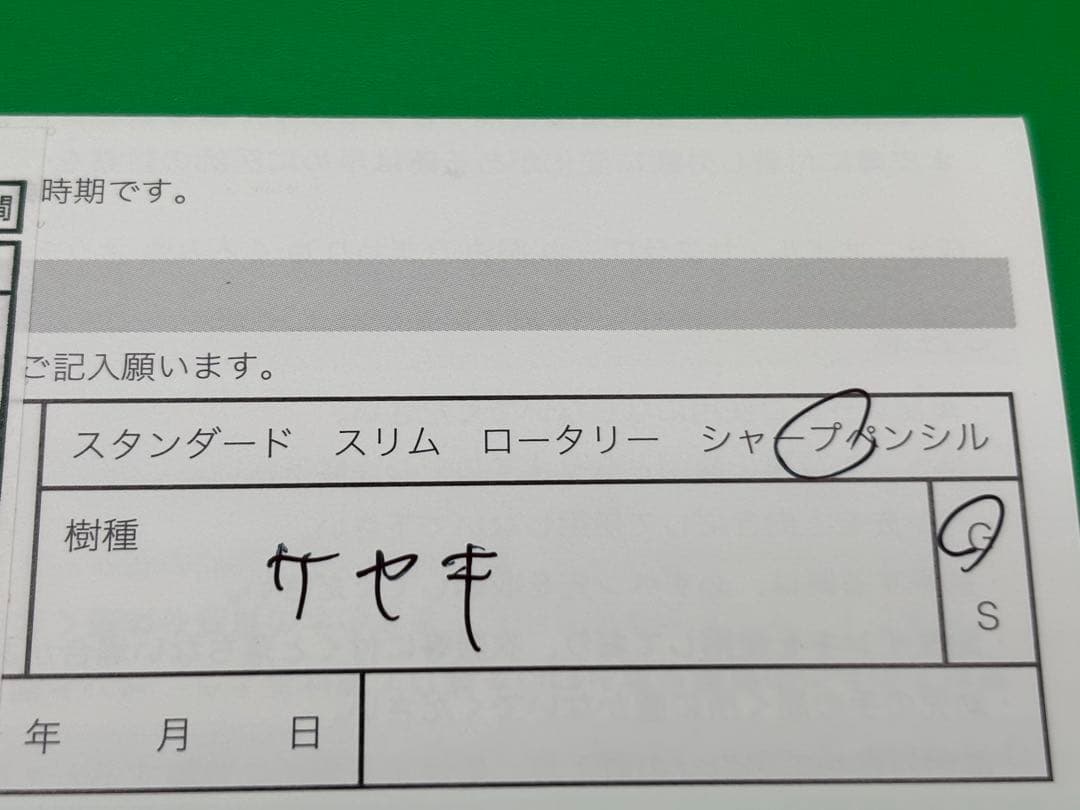 間 時期です。
ご記入願います。
スタンダード スリム ロータリー シャープペンシル
樹種 ケヤキ G
S
年 月 日